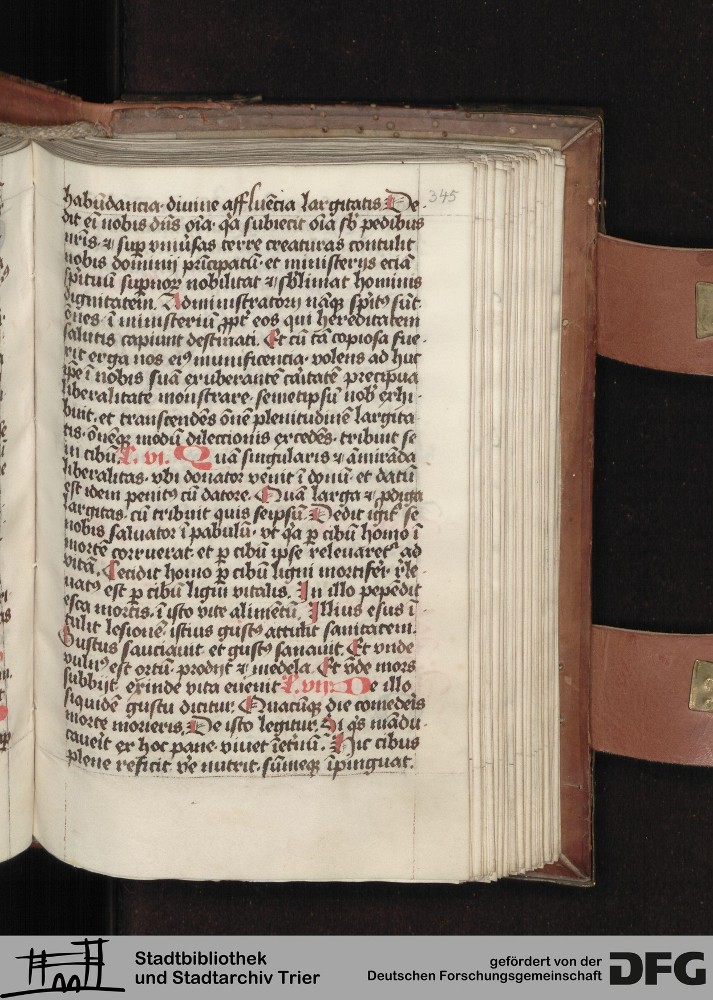 habūdancia· divine affluēcia largitatis De-
345
dit eī nobis dn̄s oīa· qͣa subiecit oīa sb̄ pedibus
nr̄is· ⁊ sup vniūsas terre creaturas contulit
nobis dominij prīcipatū· et ministerijs eciā
sp̄ituū supnoꝝ nobilitat ⁊ sb̄limat hominis
dignitatem. Administratorij nāqꝫ sp̄itꝰ sūt
ōnes· ī ministeriū ꝓpt̄ eos qui hereditatem
salutis capiunt destinati. Et cū tā copiosa fue-
rit erga nos eiꝰ munificencia· volens ad huc
ip̄e ī nobis suā exuberantē caͥtatē precipua
liberalitate monstrare· semetipsū nob̄ exhi-
buit· et transcendēs ōnē plenitudinē largita
tis· ōnēqꝫ modū dilectionis excedēs· tribuit se
in cibū. L. vi. Quā singularis ⁊ āmirāda
liberalitas· vbi donator venit ī donū· et datū
est idem penitꝰ cū datore. Quā larga ⁊ ꝓdiga
largitas· cū tribuit quis seipsū. Dedit igit̄ se
nobis saluator ī pabulū· vt qͣa ꝑ cibū homo ī
mortē corruerat· et ꝑ cibū ipse releuaret̄ ad
vitā. Cecidit homo ꝑ cibū ligni mortiferi· r̄le
uatꝰ est ꝑ cibū ligni vitalis. In illo pepēdit
esca mortis· ī isto vite alimētū. Illius esus ī
tulit lesionē· istius gustꝰ attulit sanitatem.
Gustus sauciauit· et gustꝰ sanauit. Et vnde
vulnꝰ est ortū· prodijt ⁊ medela. Et vn̄de mors
subbijt· exinde vita euenit L. vii. De illo
siquidē gustu dicitur. Quacūqꝫ die comederis
morte morieris. De isto legitur. Si qͥs mādu-
cauerit ex hoc pane· viuet īet̄nū. Hic cibus
plene reficit· ve nutrit· sūmeqꝫ īpinguat.
Stadtbibliothek
und Stadtarchiv Trier
gefördert von der
Deutschen Forschungsgemeinschaft
DFG